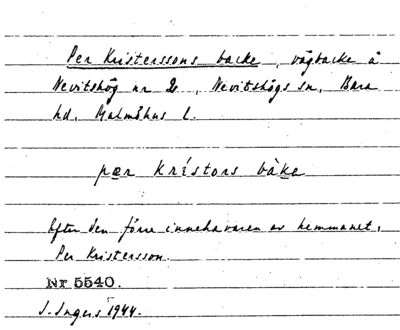 Per Kristerssons backe, vägbacke å
Nevitshög nr 2, Nevitshögs sn, Bara
hd, Malmöhus l.
pær krístors bàke
Efter den förre innehavaren av hemmanet,
Per Kristersson.
Nr 5540.
I. Ingers 1944.